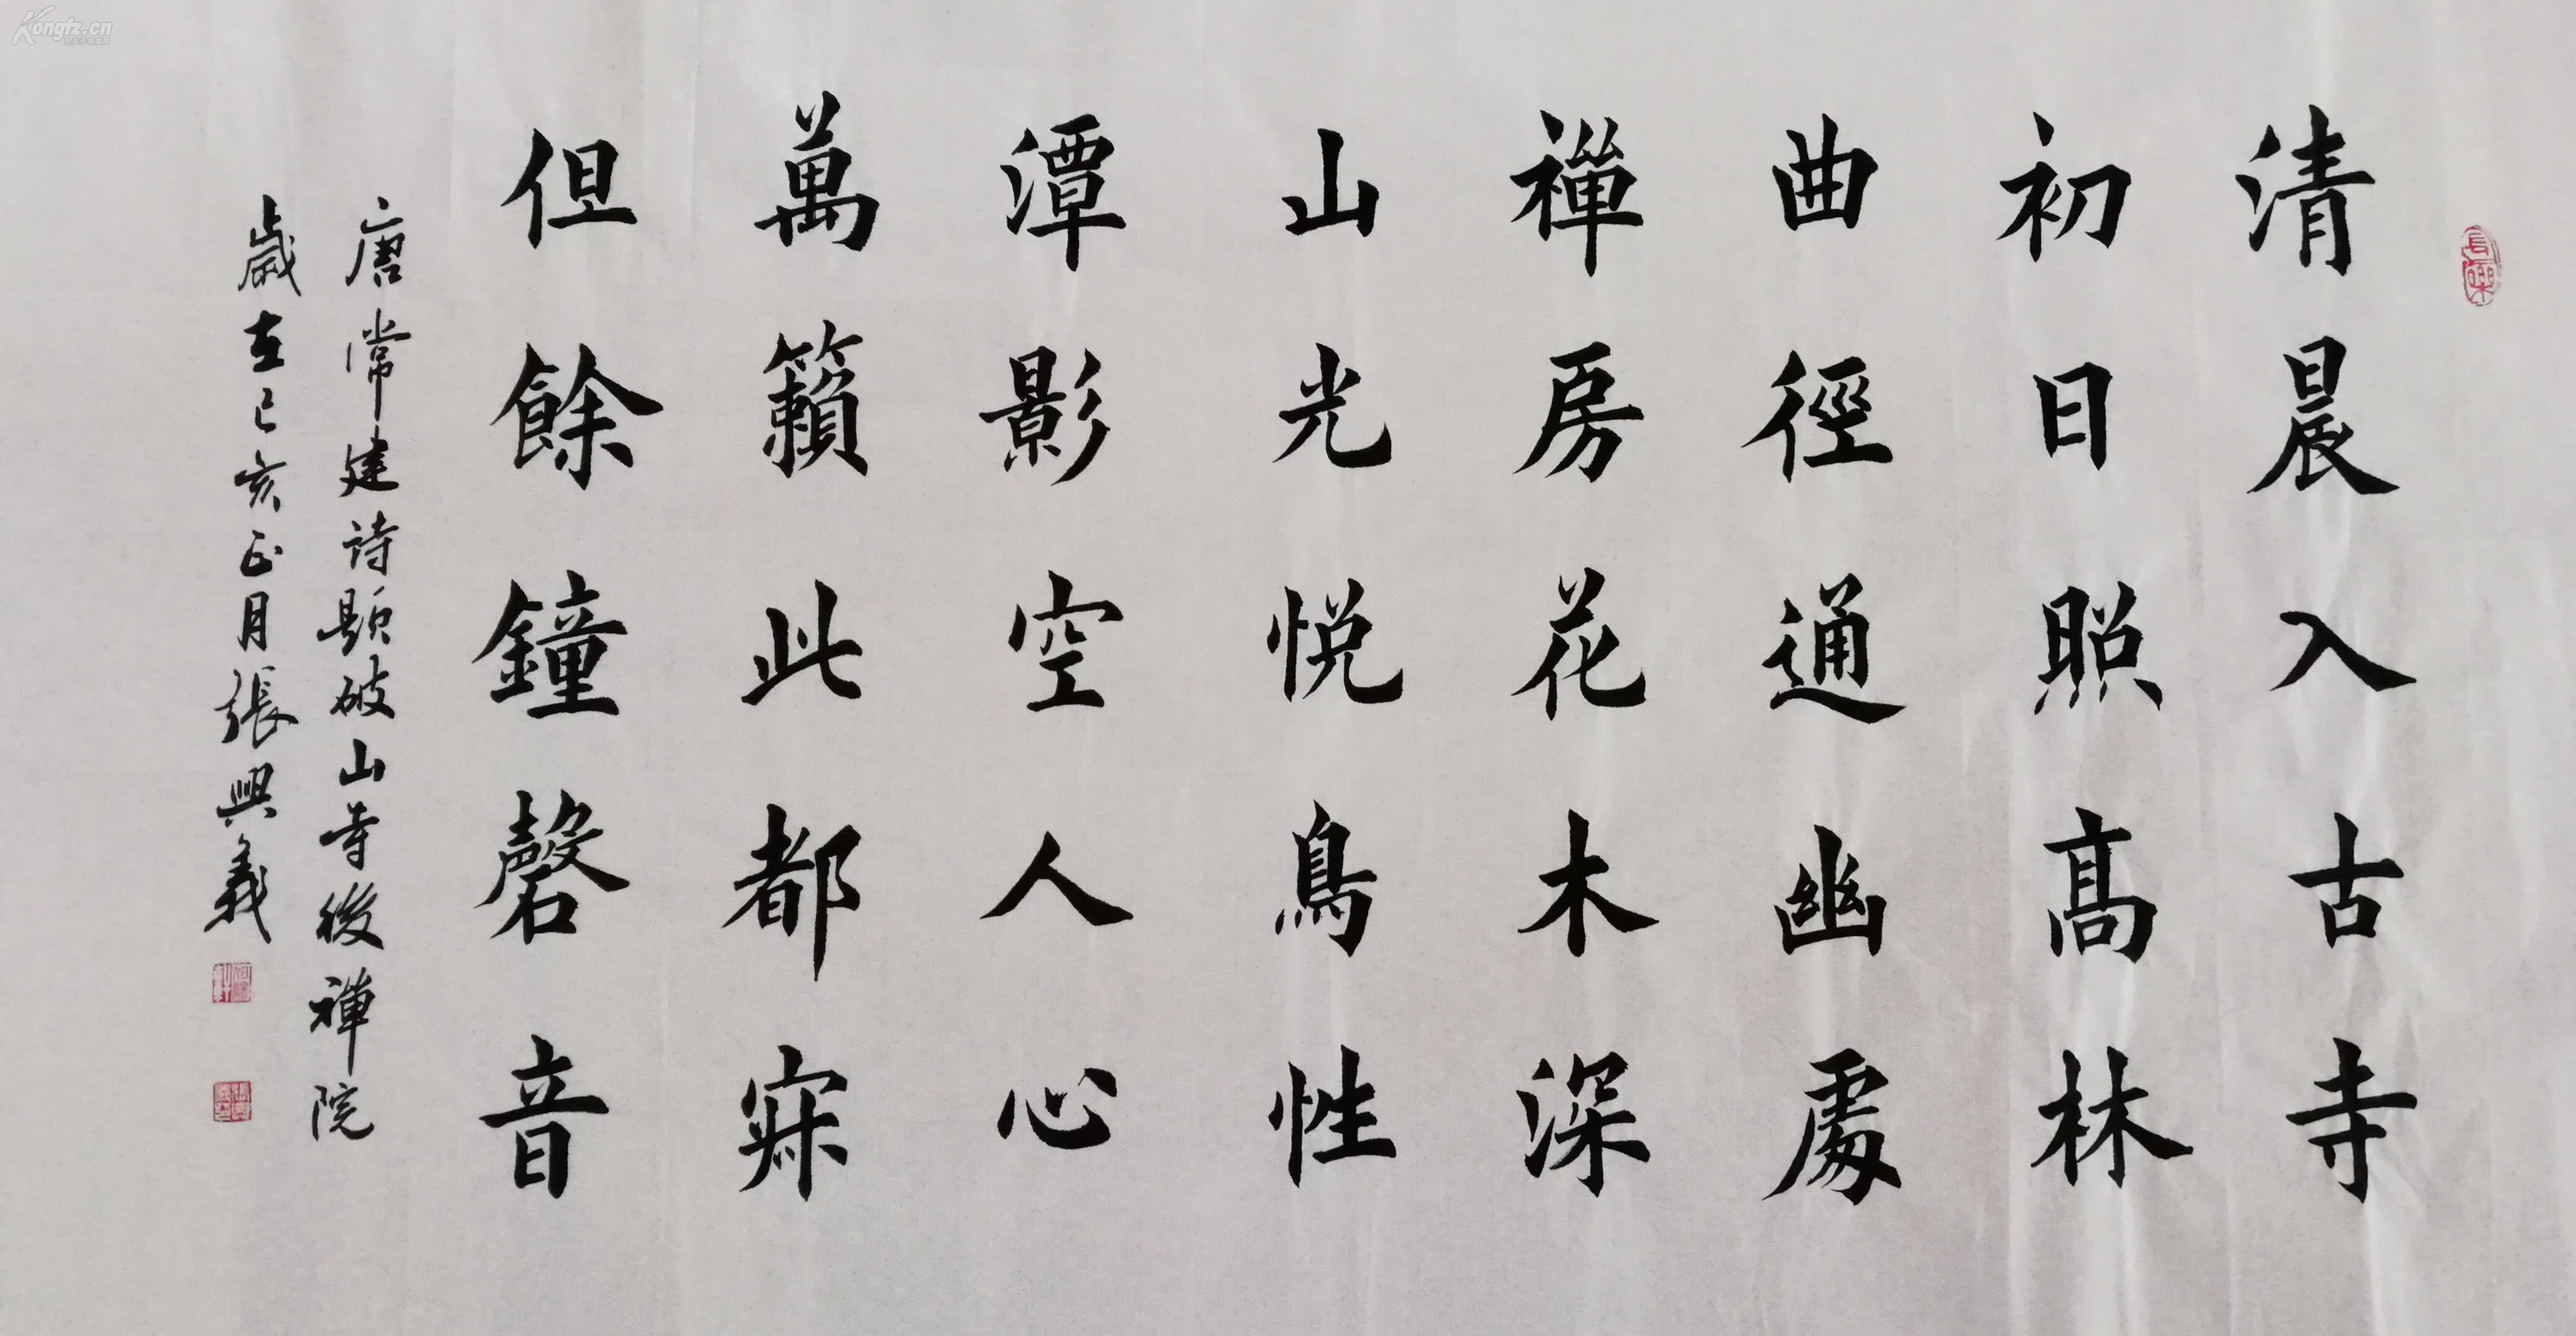 清晨入古寺
初日照高林
曲徑通幽處
禪房花木深
山光悦鳥性
潭影空人心
萬籟此都寂
但餘鐘磬音
唐常建诗題破山寺後禅院
歲在己亥正月張興義
長樂
Kongfz.cn